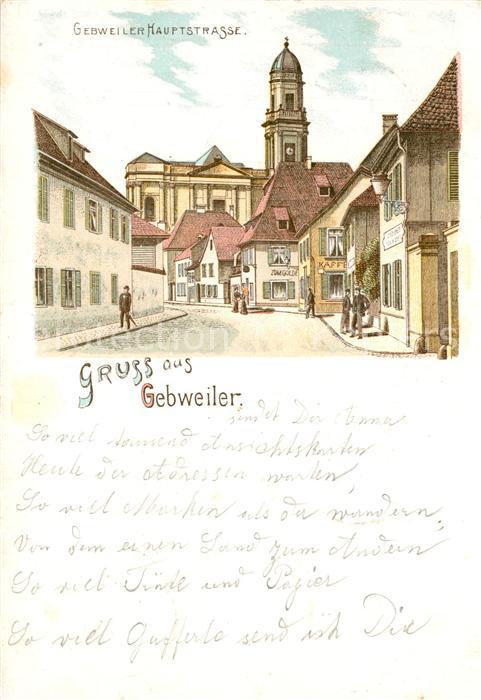 GEBWEILER HAUPTSTRASSE.
ZUM GOLDE
KAFFE
GRUSS aus
Gebweiler.
sendet Dir Anna
So viel tausend Ansichtskarten
Heute der Adressen warten,
So viel Marken als da wandern,
Von dem einen Land zum Andern
So viel Tinte und Papier
So viel send ich Dir